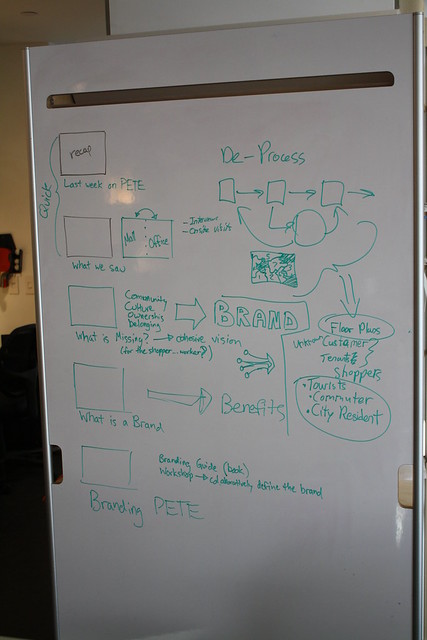 recap
Last week on PETE
Quick
Mall Office
- Interview
- Onsite visits
What we saw
Community
Culture
Ownership
belonging
What is Missing? → cohesive vision
(for the shopper...worker?)
BRAND
What is a Brand
Benefits
Branding Guide (book)
Workshop → collaboratively define the brand
Branding PETE
De-Process
Floor Plans
Customer
Tenants
Shoppers
• Tourists
• Commuter
• City Resident